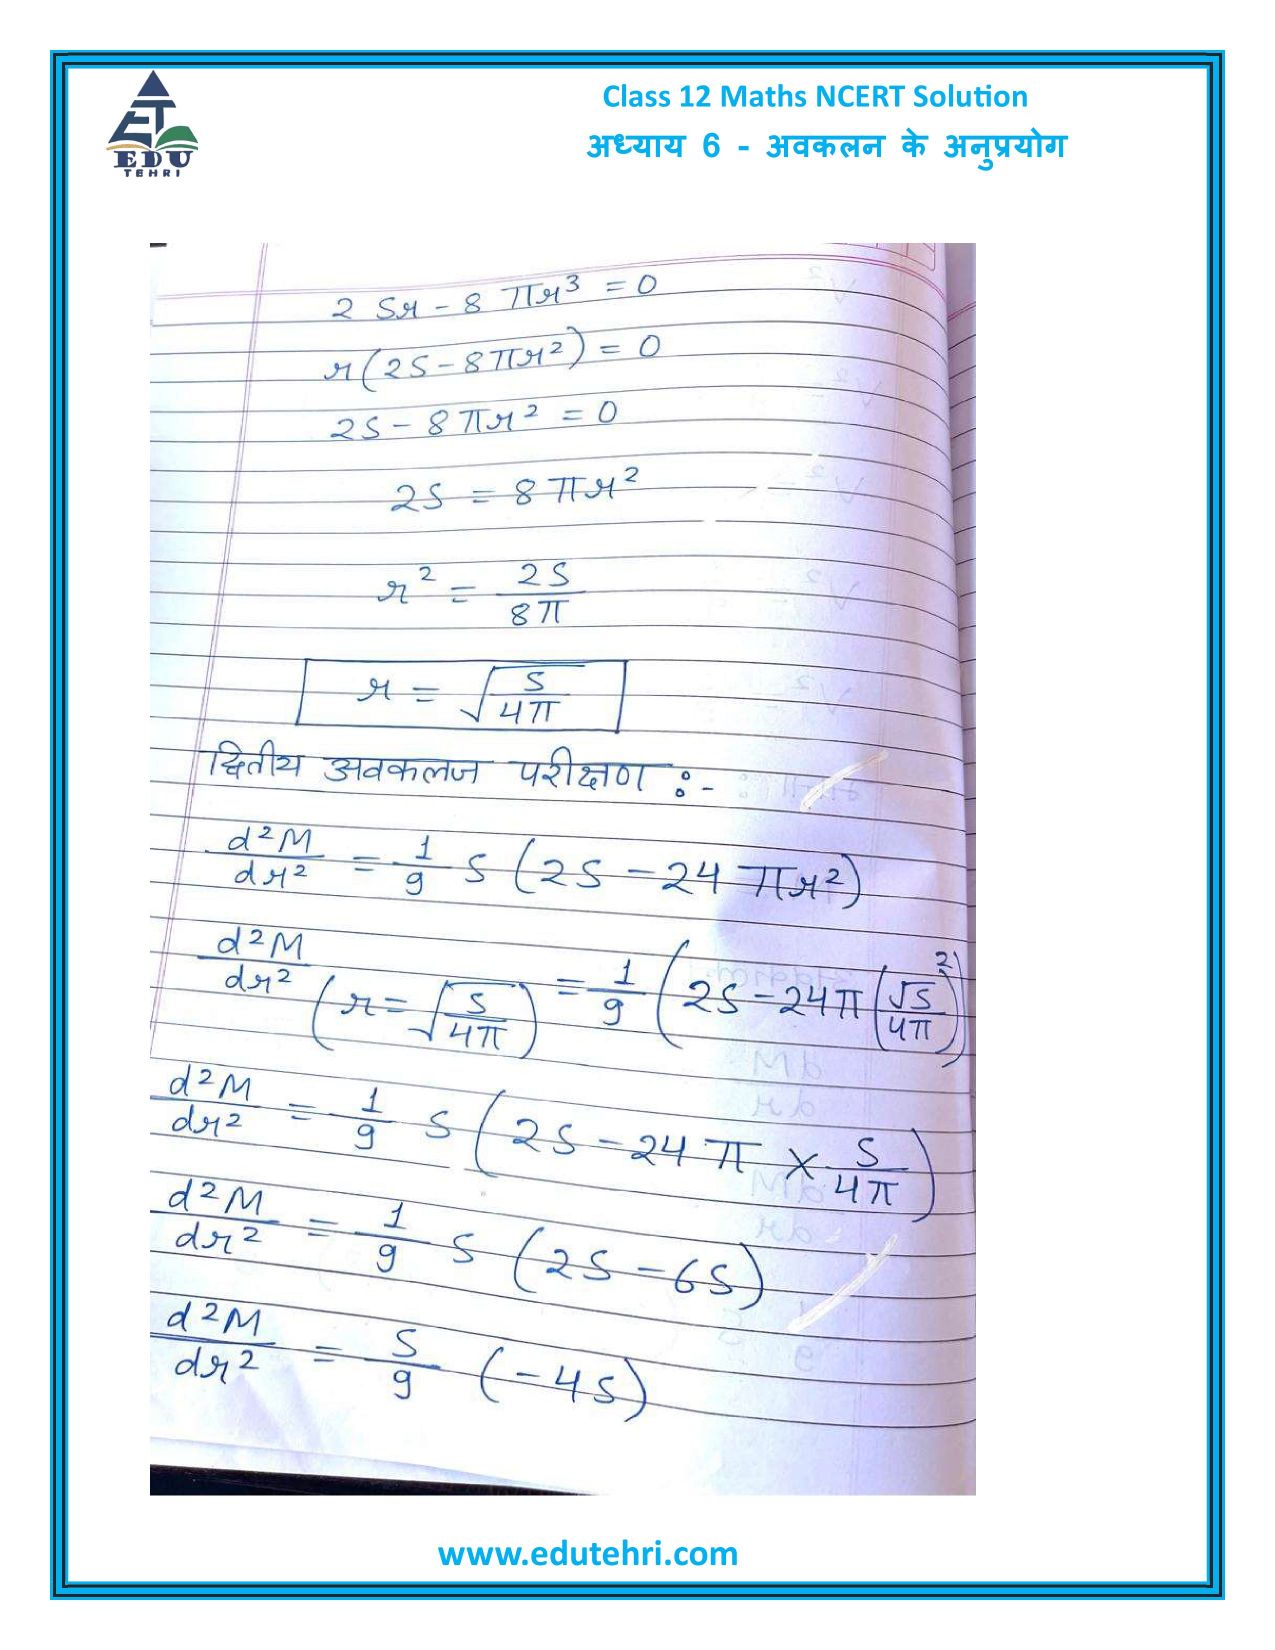 Class 12 Maths NCERT Solution
अध्याय 6 - अवकलन के अनुप्रयोग
ET
EDU
TEHRI
2 Sr - 8 πr³ = 0
r(2S - 8πr²) = 0
2S - 8πr² = 0
2S = 8πr²
r² = 2S/8π
r = √(S/4π)
द्वितीय अवकलज परीक्षण :-
d²M/dr² = 1/9 S (2S - 24 πr²)
d²M/dr² (r = √(S/4π)) = 1/9 (2S - 24π (√S/4π)²)
d²M/dr² = 1/9 S (2S - 24π × S/4π)
d²M/dr² = 1/9 S (2S - 6S)
d²M/dr² = S/9 (-4S)
www.edutehri.com